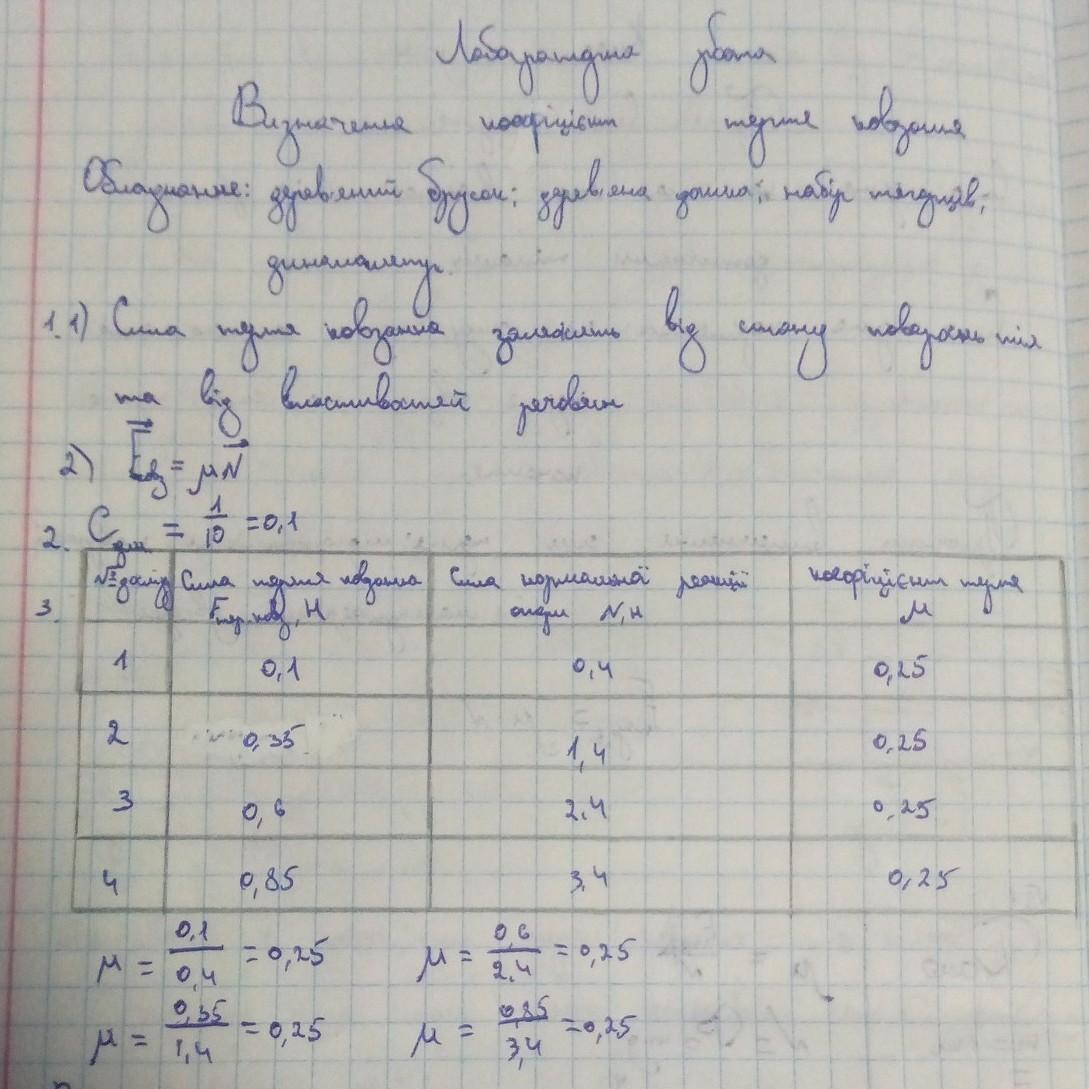 Лабораторна робота
Визначення коефіцієнт тертя ковзання
Обладнання: дерев'яний брусок; дерев'яна дошка; набір тягарців;
динамометр.
1. 1) Сила тертя ковзання залежить від стану поверхонь тіл
та від властивостей речовин
2) = μN
2. C = 1/10 = 0,1
3. № досліду Сила тертя ковзання Fтер.ковз, Н Сила нормальної реакції опори N, Н коефіцієнт тертя μ
1 0,1 0,4 0,25
2 0,35 1,4 0,25
3 0,6 2.4 0,25
4 0,85 3.4 0,25
μ = 0,1/0,4 = 0,25 μ = 0,6/2.4 = 0,25
μ = 0,35/1,4 = 0,25 μ = 0,85/3,4 = 0,25